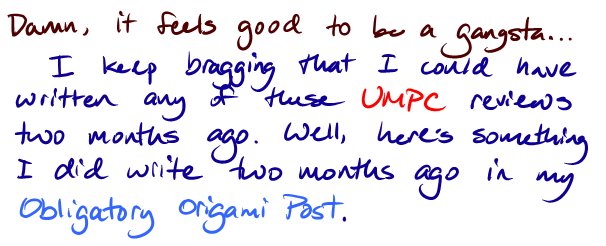 Damn, it feels good to be a gangsta...
I keep bragging that I could have
written any of these UMPC reviews
two months ago. Well, here's something
I did write two months ago in my
Obligatory Origami Post.